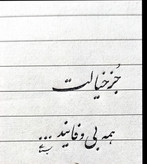 جُز خیالت
همه بی وفایند...